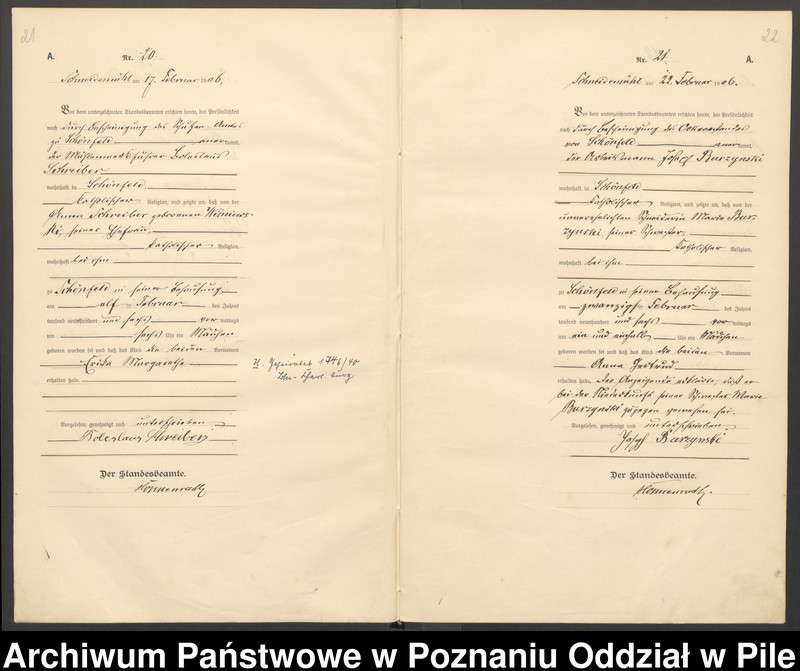 21
A.
Nr. 20.
Schneidemühl am 17. Februar 1906.
Vor dem unterzeichneten Standesbeamten erschien heute, der Persönlichkeit
nach durch Bescheinigung des Schulzen-Amtes
zu Schönfeld anerkannt,
der Mühlenwerkführer Boleslaus
Schreiber
wohnhaft in Schönfeld,
katholischer Religion, und zeigte an, daß von der
Anna Schreiber geborenen
seiner Ehefrau,
katholischer Religion,
wohnhaft bei ihm
zu Schönfeld in seiner Behausung
am elf Februar des Jahres
tausend neunhundert und sechs vormittags
um sechs Uhr ein Mädchen
geboren worden sei und daß das Kind die beiden Vornamen
Erika Margarethe
erhalten habe.
Vorgelesen, genehmigt und unterschrieben
Boleslaus Schreiber
Der Standesbeamte.
H. Geheiratet 1746/40
Bln-Charl. burg
22
Nr. 21.
A.
Schneidemühl am 22. Februar 1906.
Vor dem unterzeichneten Standesbeamten erschien heute, der Persönlichkeit
nach durch Bescheinigung des Ortsvorstandes
von Schönfeld anerkannt,
der Arbeitsmann Josef Burzynski
wohnhaft in Schönfeld
katholischer Religion, und zeigte an, daß von der
unverehelichten Schneiderin Maria Bur-
zynski seiner Schwester,
katholischer Religion,
wohnhaft bei ihm
zu Schönfeld in seiner Behausung
am zwanzigst Februar des Jahres
tausend neunhundert und sechs vormittags
um ein und einhalb Uhr ein Mädchen
geboren worden sei und daß das Kind die beiden Vornamen
Anna Gertrud
erhalten habe. Der Anzeigende erklärte, daß er
bei der Niederkunft seiner Schwester Maria
Burzynski zugegen gewesen sei.
Vorgelesen, genehmigt und unterschrieben
Josef Burzynski
Der Standesbeamte.
Archiwum Państwowe w Poznaniu Oddział w Pile